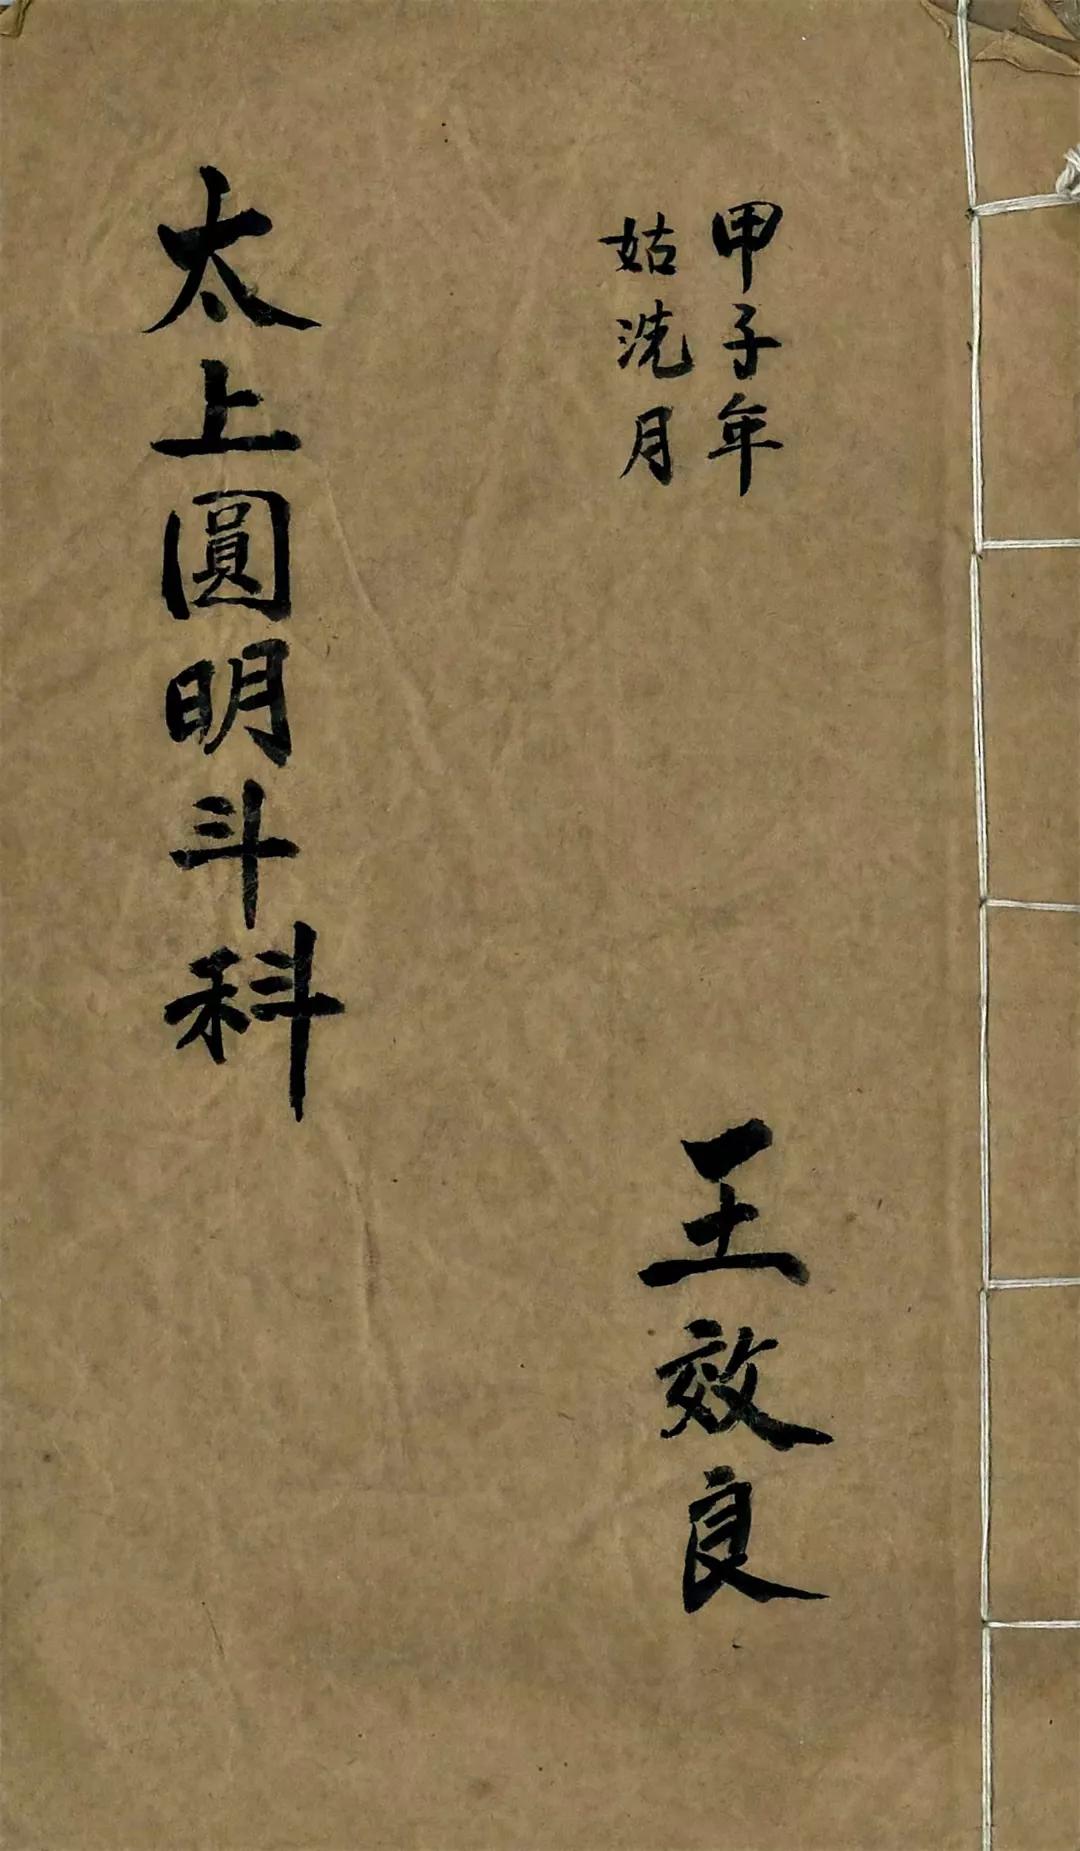 甲子年
姑洗月
王效良
太上圓明斗科